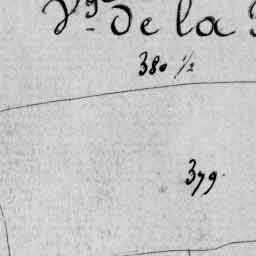 Vg. de la
380 1/2
379.